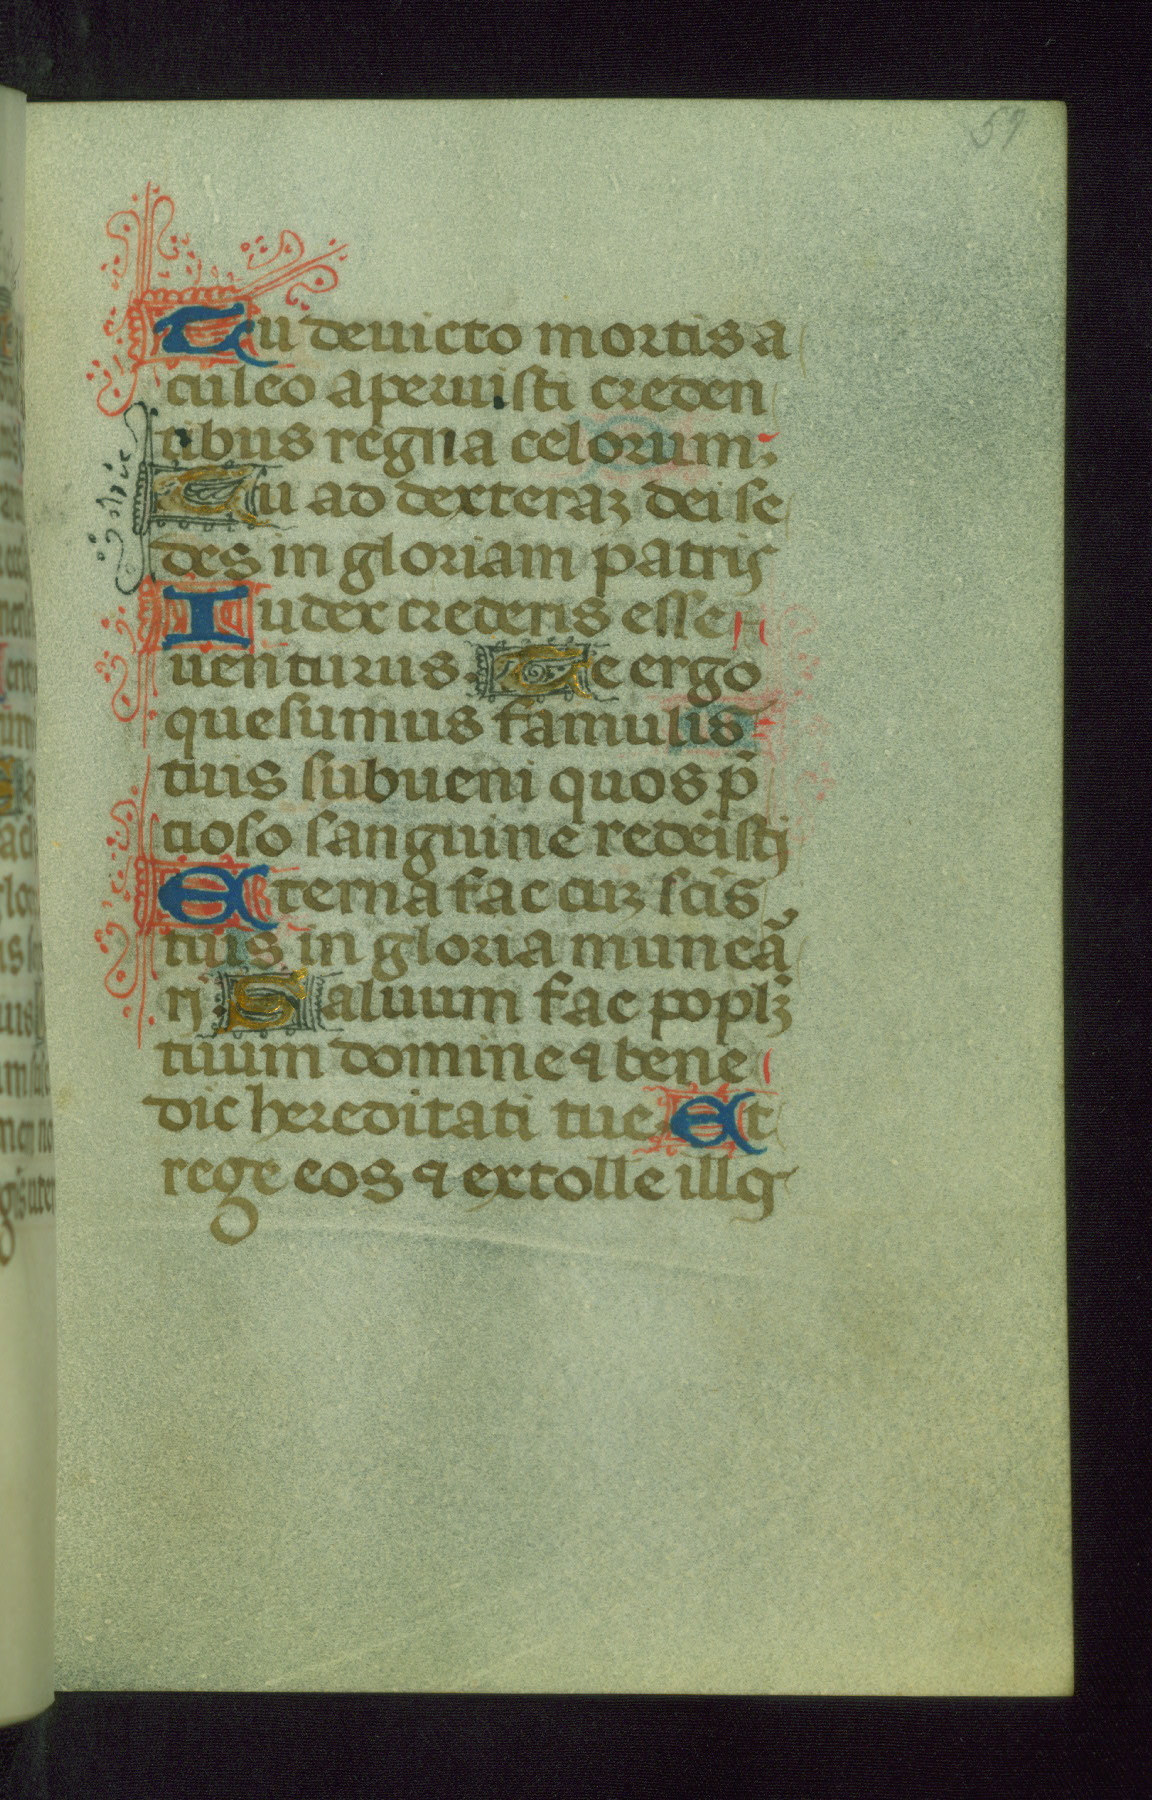 59
Tu deuicto mortis a
culeo aperuisti creden
tibus regna celorum.
Tu ad dexteraʒ dei se
des in gloriam patris
Iudex crederis esse
uenturus. Te ergo
quesumus famulis
tuis subueni quos p̄
tioso sanguine redeīsti
Eterna fac cuʒ scīs
tuis in gloria munerā
ri. Saluum fac poplʒ
tuum domine ⁊ bene
dic hereditati tue Et
rege eos ⁊ extolle illꝰ